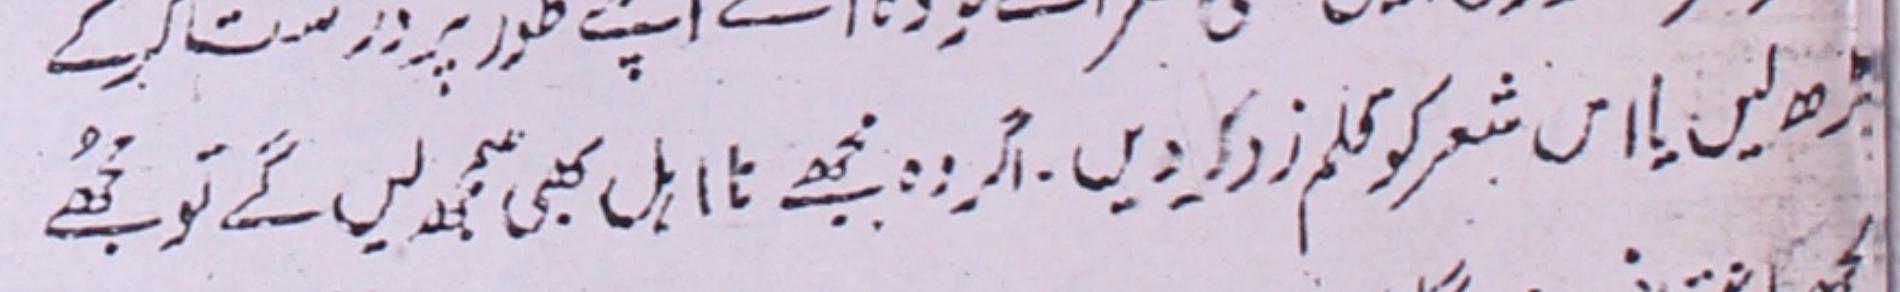 اسے اپنے طور پر درست کرکے
پڑھ لیں یا اس شعر کو قلم زد کر دیں۔ اگر وہ مجھے نا اہل بھی سمجھ لیں گے تو مجھے